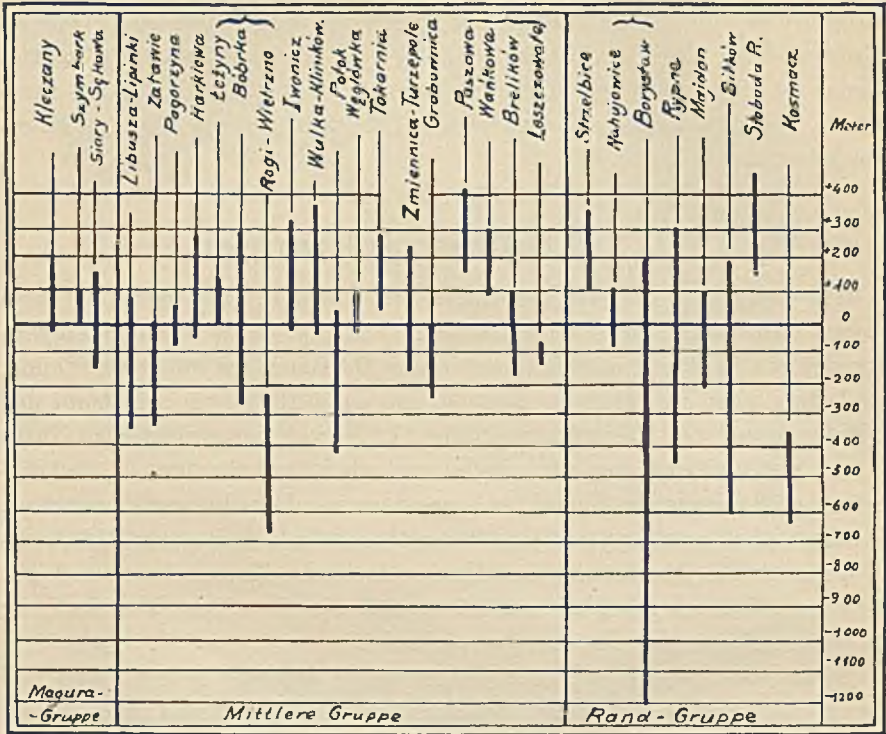 Kleczany
Szymbark
Siary-Sękowa
Libusza-Lipinki
Załawie
Pogorzyna
Harklowa
Łężyny
Bóbrka
Rogi-Wietrzno
Iwonicz
Wulka-Klimków.
Potok
Węglówka
Tokarnia
Zmiennica-Turzepole
Grabownica
Paszowa
Wańkowa
Brelików
Łoszczowate
Strzelbice
Nahujowice
Borysław
Rypne
Majdan
Bitków
Słoboda R.
Kosmacz
Meter
+400
+300
+200
+100
0
-100
-200
-300
-400
-500
-600
-700
-800
-900
-1000
-1100
-1200
Magura-
-Gruppe
Mittlere Gruppe
Rand-Gruppe